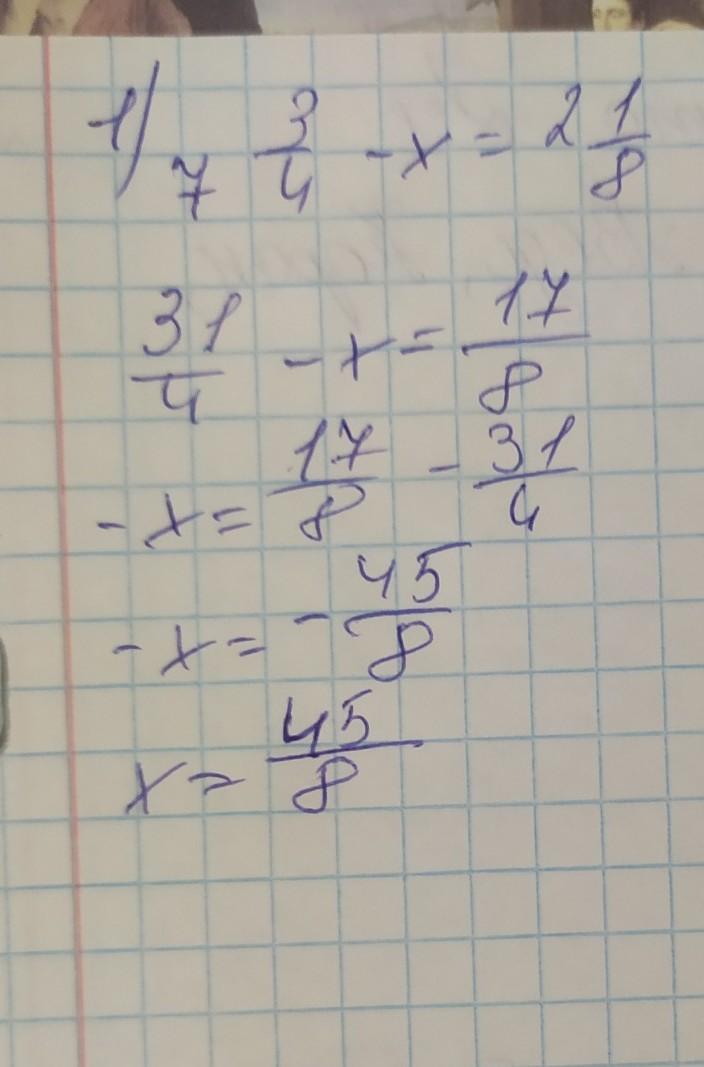 1) 7 3/4 - x = 2 1/8
31/4 - x = 17/8
- x = 17/8 - 31/4
- x = - 45/8
x = 45/8